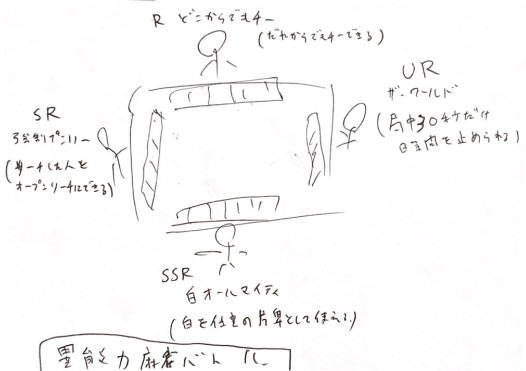 R どこからでもチー
(だれからでもチーできる)
UR
ザ・ワールド
(局中30秒だけ
時間を止められる)
SR
強制オープンリーチ
(リーチした人を
オープンリーチにできる)
SSR
白オールマイティ
(白を任意の牌として使える)
異能力麻雀バトル